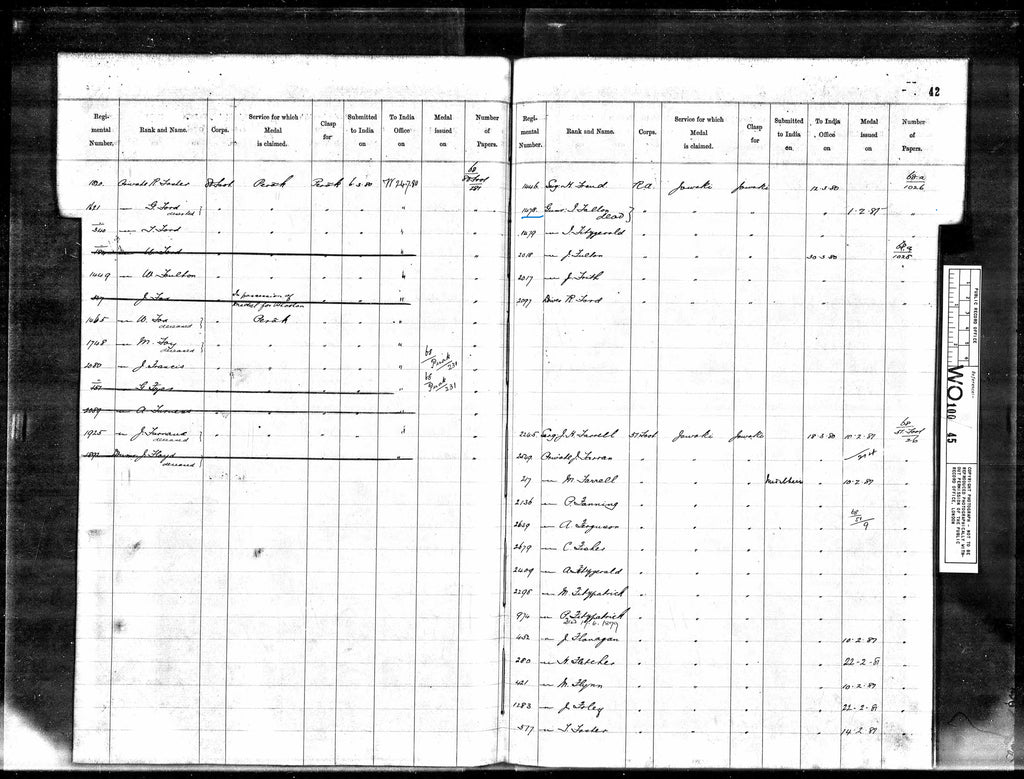 42
Regi-mental Number. Rank and Name. Corps. Service for which Medal is claimed. Clasp for Submitted to India on To India Office on Medal issued on Number of Papers.
Private R Foster 80 Foot Perak Perak 6.3.80 68/80 Foot/101
1621 " G. Ford deceased "
" T. Ford
" W. Ford
1449 " W. Fulton
" J. Fox In possession of medal for
1465 " W. Fox deceased Perak
1748 " M. Foy deceased
2080 " J. Francis 68/Perak/231
" G. Fyas 68/Perak/231
2089 " A. Furness
1925 " J. Furnand deceased
J. Floyd deceased
Regi-mental Number. Rank and Name. Corps. Service for which Medal is claimed. Clasp for Submitted to India on To India Office on Medal issued on Number of Papers.
1446 Serg H. Friend R.A. Jowaki Jowaki 12.3.80 68.a/1026
1478 Gunr. J. Fallon dead 1-2.81
1479 " J. Fitzgerald
2018 " J. Fulton 30.3.80
2017 " J. Frith
2097 Driver R. Ford
2245 Serg J. H. Farrell 51 Foot Jowaki Jowaki 18.3.80 10.2.81 68/51 Foot/26
2529 Private J. Farran
27 " M. Farrell 10-2.81
2136 " P. Fanning
2659 " A. Ferguson 68/51/9
2679 " C. Fisher
2409 " A. Fitzgerald
2295 " M. Fitzpatrick
974 " P. Fitzpatrick
Died 19.6.1879
452 " J. Flanagan 10.2.81
280 " H. Fletcher 22-2-81
421 " M. Flynn 10-2.81
1283 " J. Foley 22-2-81
577 " T. Foster 14-2.81
PUBLIC RECORD OFFICE
Reference:-
WO 100 / 45
COPYRIGHT PHOTOGRAPH - NOT TO BE REPRODUCED PHOTOGRAPHICALLY WITHOUT PERMISSION OF THE PUBLIC RECORD OFFICE, LONDON